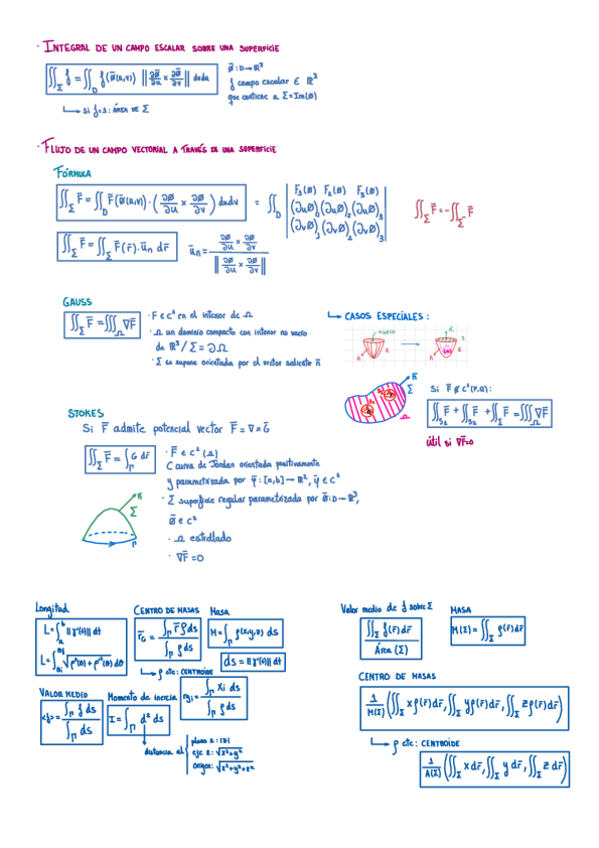 · INTEGRAL DE UN CAMPO ESCALAR SOBRE UNA SUPERFICIE
∬_Σ f = ∬_D f(Φ̄(u,v)) ‖∂Φ̄/∂u × ∂Φ̄/∂v‖ dudv
Φ̄: D→ℝ³
f campo escalar ∈ ℝ³
que contiene a Σ=Im(Φ)
↳ Si f=1: ÁREA DE Σ
· FLUJO DE UN CAMPO VECTORIAL A TRAVÉS DE UNA SUPERFICIE
FÓRMULA
∬_Σ F̄ = ∬_D F̄(Φ̄(u,v)) · (∂Φ/∂u × ∂Φ/∂v) dudv = ∬_D | F₁(Φ) F₂(Φ) F₃(Φ) |
| (∂uΦ)₁ (∂uΦ)₂ (∂uΦ)₃ |
| (∂vΦ)₁ (∂vΦ)₂ (∂vΦ)₃ |
∬_Σ F̄ = -∬_Σ⁻ F̄
∬_Σ F̄ = ∬_Σ F̄(r̄) · ū_n dr̄
ū_n = (∂Φ/∂u × ∂Φ/∂v) / ‖∂Φ/∂u × ∂Φ/∂v‖
GAUSS
∬_Σ F̄ = ∭_Ω ∇F̄
· F ∈ C¹ en el interior de Ω
· Ω un dominio compacto con interior no vacío
de ℝ³ / Σ = ∂Ω
· Σ se supone orientada por el vector saliente n̄
↳ CASOS ESPECIALES:
Si F̄ ∉ C¹(P,Q):
∬_S₁ F̄ + ∬_S₂ F̄ + ∬_Σ F̄ = ∭_Ω ∇F̄
útil si ∇F̄=0
STOKES
Si F̄ admite potencial vector F̄ = ∇×Ḡ
∬_Σ F̄ = ∫_Γ G dr̄
· F̄ ∈ C¹(Ω)
Curva de Jordan orientada positivamente
y parametrizada por φ̄: [a,b] → ℝ², φ̄ ∈ C¹
· Σ superficie regular parametrizada por Φ̄: D→ℝ³,
Φ̄ ∈ C²
· Ω estrellado
· ∇F̄ = 0
n̄
Σ
Γ
Longitud
L = ∫_a^b ‖γ'(t)‖ dt
L = ∫ √(ρ²(θ) + ρ'²(θ)) dθ
CENTRO DE MASAS
r̄_G = ∫_Γ r̄ρ ds / ∫_Γ ρ ds
↳ ρ cte: CENTROIDE
Masa
M = ∫_Γ ρ(x,y,z) ds
ds = ‖γ'(t)‖ dt
VALOR MEDIO
<f> = ∫_Γ f ds / ∫_Γ ds
Momento de inercia
I = ∫_Γ d² ds
∫_Γ xi ds / ∫_Γ ρ ds
distancia al
plano z: |z|
eje z: √x²+y²
origen: √x²+y²+z²
Valor medio de f sobre Σ
∬_Σ f(r̄) dr̄ / Área (Σ)
MASA
M(Σ) = ∬_Σ ρ(r̄) dr̄
CENTRO DE MASAS
1/M(Σ) (∬_Σ xρ(r̄)dr̄, ∬_Σ yρ(r̄)dr̄, ∬_Σ zρ(r̄)dr̄)
↳ ρ cte: CENTROIDE
1/A(Σ) (∬_Σ x dr̄, ∬_Σ y dr̄, ∬_Σ z dr̄)